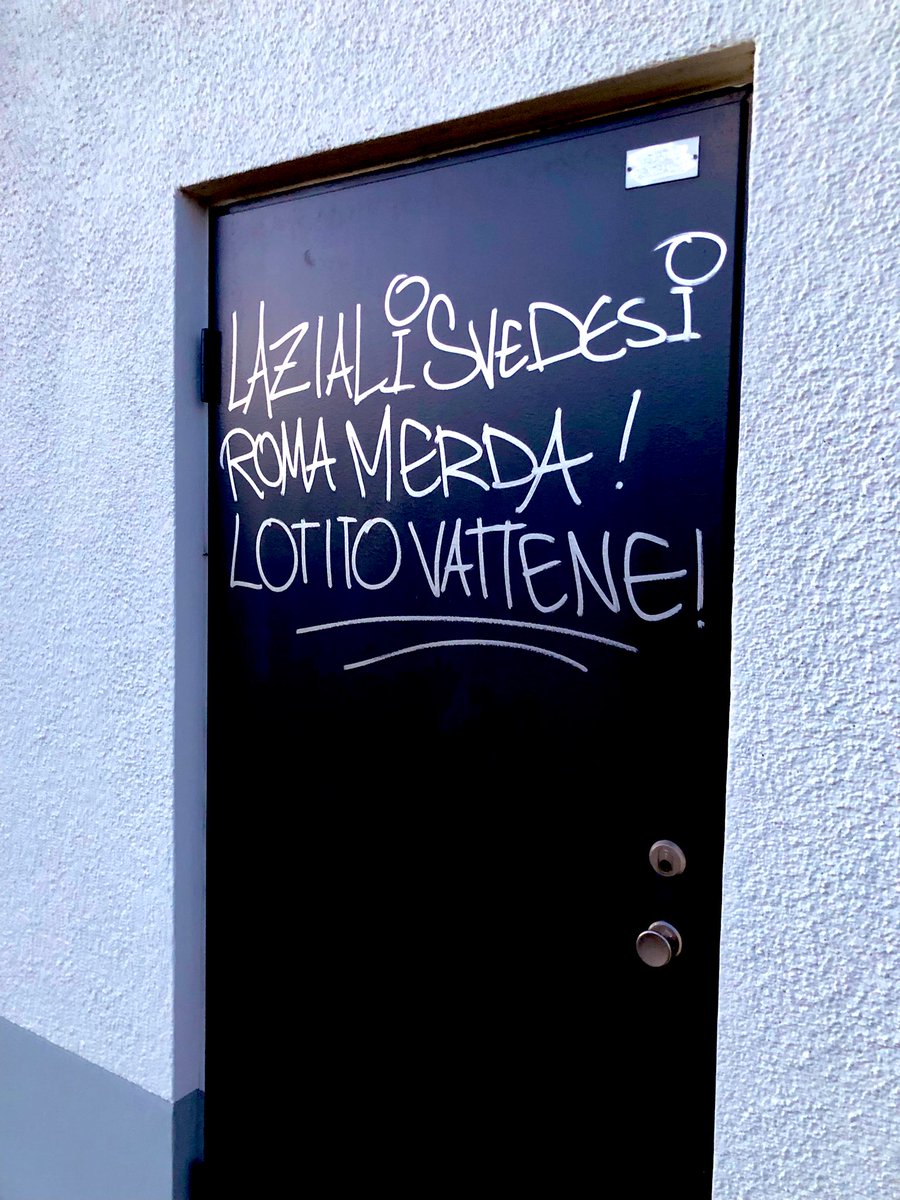 LAZIALI SVEDESI
ROMA MERDA!
LOTITO VATTENE!